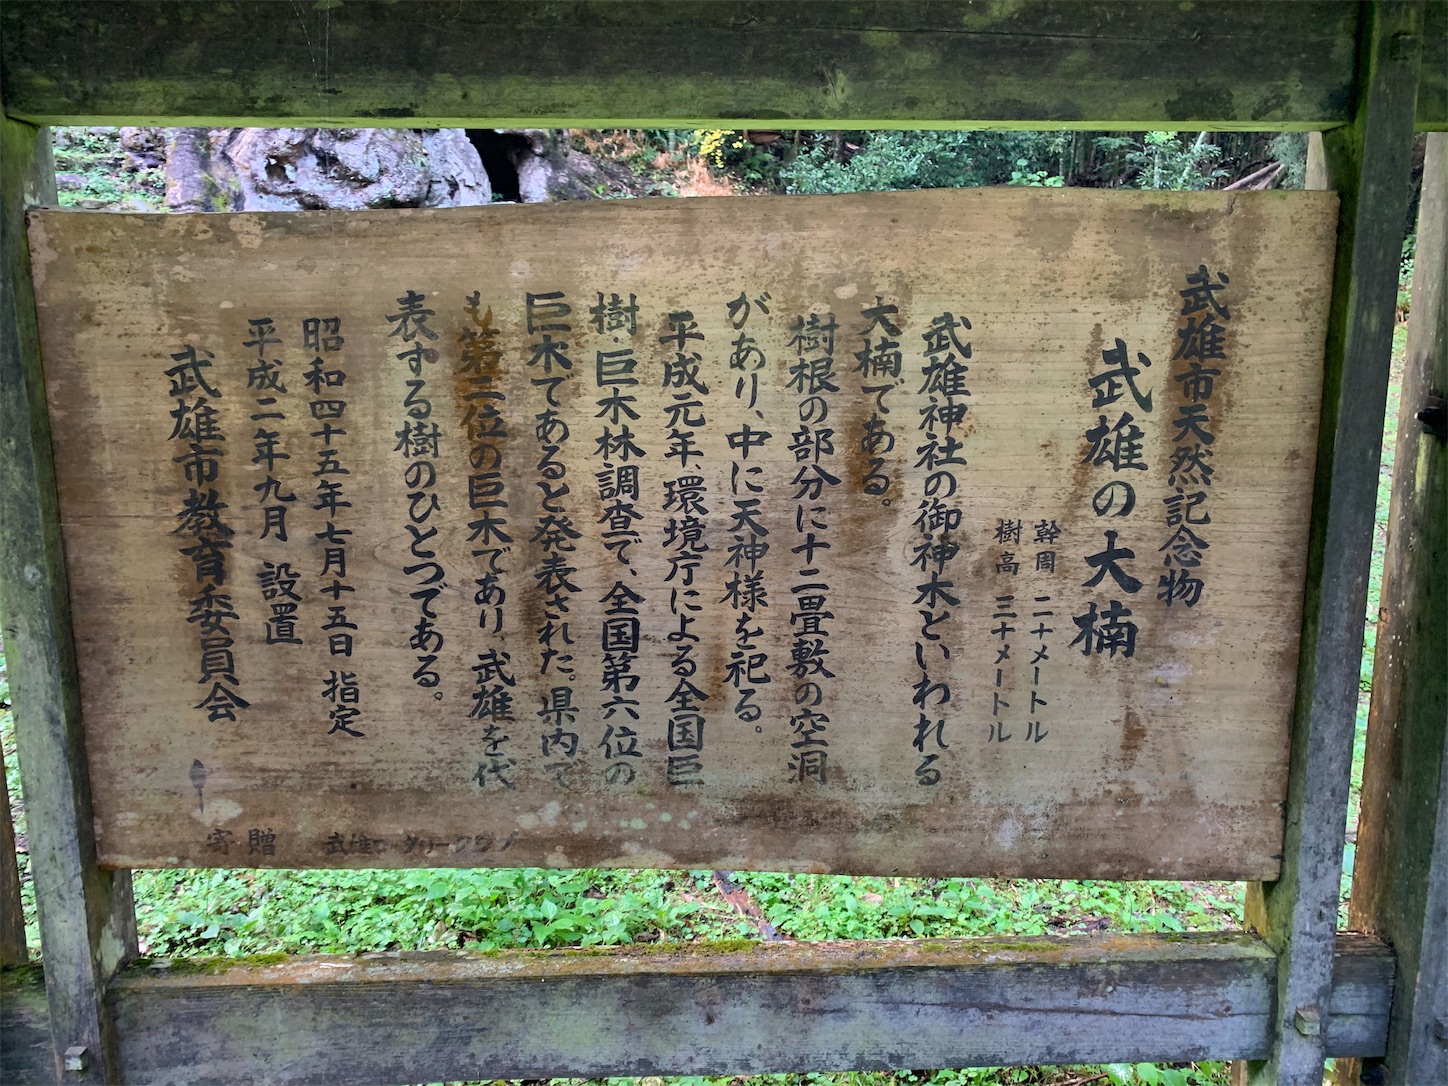 武雄市天然記念物
武雄の大楠
幹周 二十メートル
樹高 三十メートル
武雄神社の御神木といわれる
大楠である。
樹根の部分に十二畳敷の空洞
があり、中に天神様を祀る。
平成元年、環境庁による全国巨
樹・巨木林調査で、全国第六位の
巨木てあると発表された。県内で
も第二位の巨木であり、武雄を代
表する樹のひとつである。
昭和四十五年七月十五日 指定
平成二年九月 設置
武雄市教育委員会
寄贈 武雄ロータリークラブ